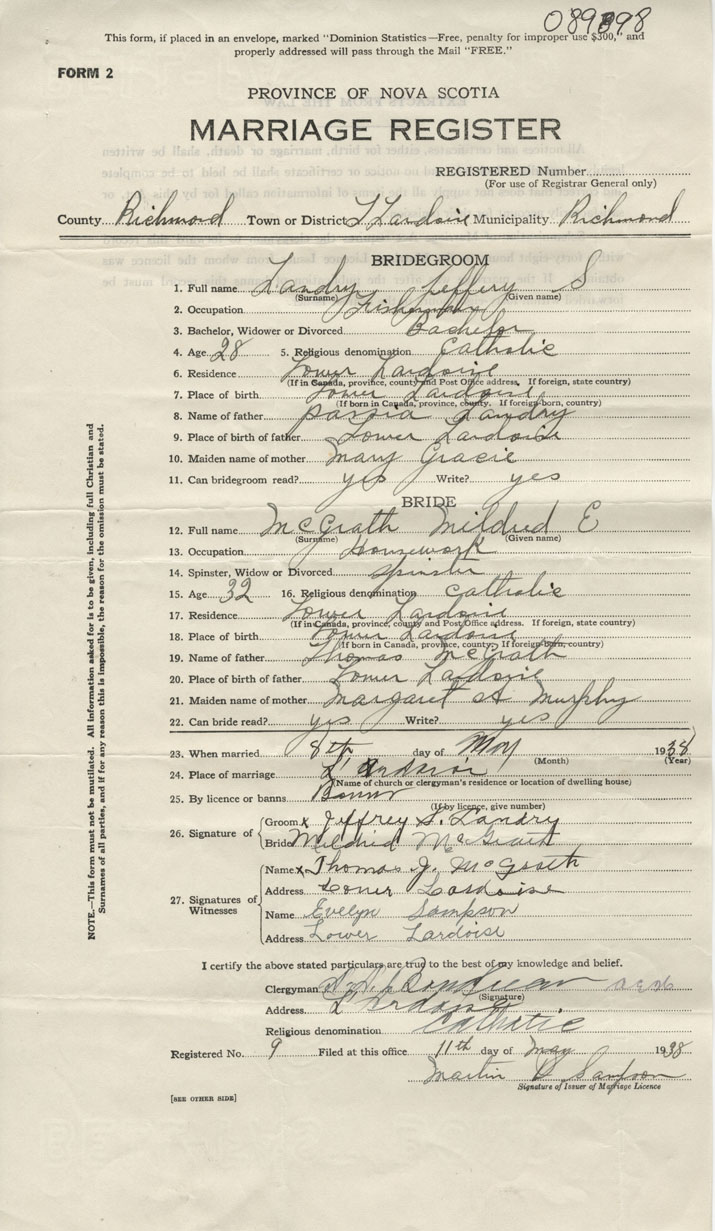 This form, if placed in an envelope, marked "Dominion Statistics—Free, penalty for improper use $300," and
properly addressed will pass through the Mail "FREE."
FORM 2
PROVINCE OF NOVA SCOTIA
MARRIAGE REGISTER
REGISTERED Number
(For use of Registrar General only)
County Richmond Town or District L'Lardoise Municipality Richmond
BRIDEGROOM
1. Full name Landry Jeffery S
(Surname) (Given name)
2. Occupation Fisherman
3. Bachelor, Widower or Divorced Bachelor
4. Age 28 5. Religious denomination Catholic
6. Residence Lower Lardoise
(If in Canada, province, county and Post Office address. If foreign, state country)
7. Place of birth Lower Lardoise
(If born in Canada, province, county. If foreign-born, country)
8. Name of father Landry
9. Place of birth of father Lower Lardoise
10. Maiden name of mother Mary Gracie
11. Can bridegroom read? yes Write? yes
BRIDE
12. Full name McGrath Mildred E
(Surname) (Given name)
13. Occupation Housework
14. Spinster, Widow or Divorced Spinster
15. Age 32 16. Religious denomination Catholic
17. Residence Lower Lardoise
(If in Canada, province, county and Post Office address. If foreign, state country)
18. Place of birth Lower Lardoise
(If born in Canada, province, county. If foreign-born, country)
19. Name of father Thomas McGrath
20. Place of birth of father Lower Lardoise
21. Maiden name of mother Margaret A Murphy
22. Can bride read? yes Write? yes
23. When married 8th day of May 1938
(Month) (Year)
24. Place of marriage L'Ardoise
(Name of church or clergyman's residence or location of dwelling house)
25. By licence or banns
(If by licence, give number)
26. Signature of
Groom x Jeffrey S. Landry
Bride Mildrid McGrath
27. Signatures of Witnesses
Name x Thomas J. McGrath
Address Loner Lardoise
Name Evelyn Sampson
Address Lower Lardoise
I certify the above stated particulars are true to the best of my knowledge and belief.
Clergyman
(Signature)
Address L'Ardoise
Religious denomination Catholic
Registered No. 9 Filed at this office 11th day of May 1938
Martin D Sampson
Signature of Issuer of Marriage Licence
[SEE OTHER SIDE]
NOTE.—This form must not be mutilated. All information asked for is to be given, including full Christian and
Surnames of all parties, and if for any reason this is impossible, the reason for the omission must be stated.